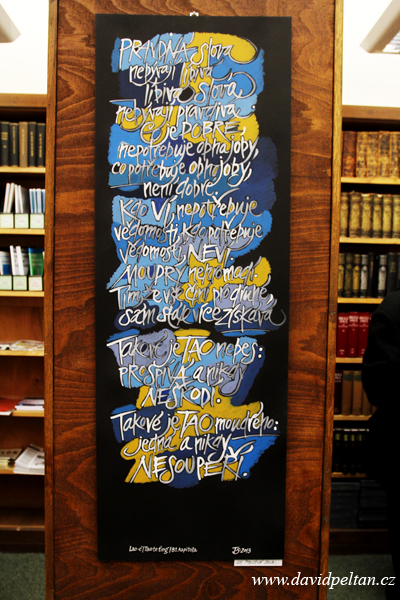 PRAVDIVÁ slova
nebývají líbivá,
líbivá slova
nebývají pravdivá.
Co je DOBRÉ,
nepotřebuje obhajoby,
co potřebuje obhajoby,
není dobré.
Kdo VÍ, nepotřebuje
vědomosti, kdo potřebuje
vědomosti, NEVÍ.
MOUDRÝ nehromadí.
Tím, že vše činí pro druhé,
sám však více získává
Takové je TAO nebes:
PROSPÍVÁ a nikdy
NEŠKODÍ.
Takové je TAO moudrého:
jedná a nikdy
NESOUPEŘÍ.
Lao-c' / Tao te ťing / 81. kapitola
2013
www.davidpeltan.cz